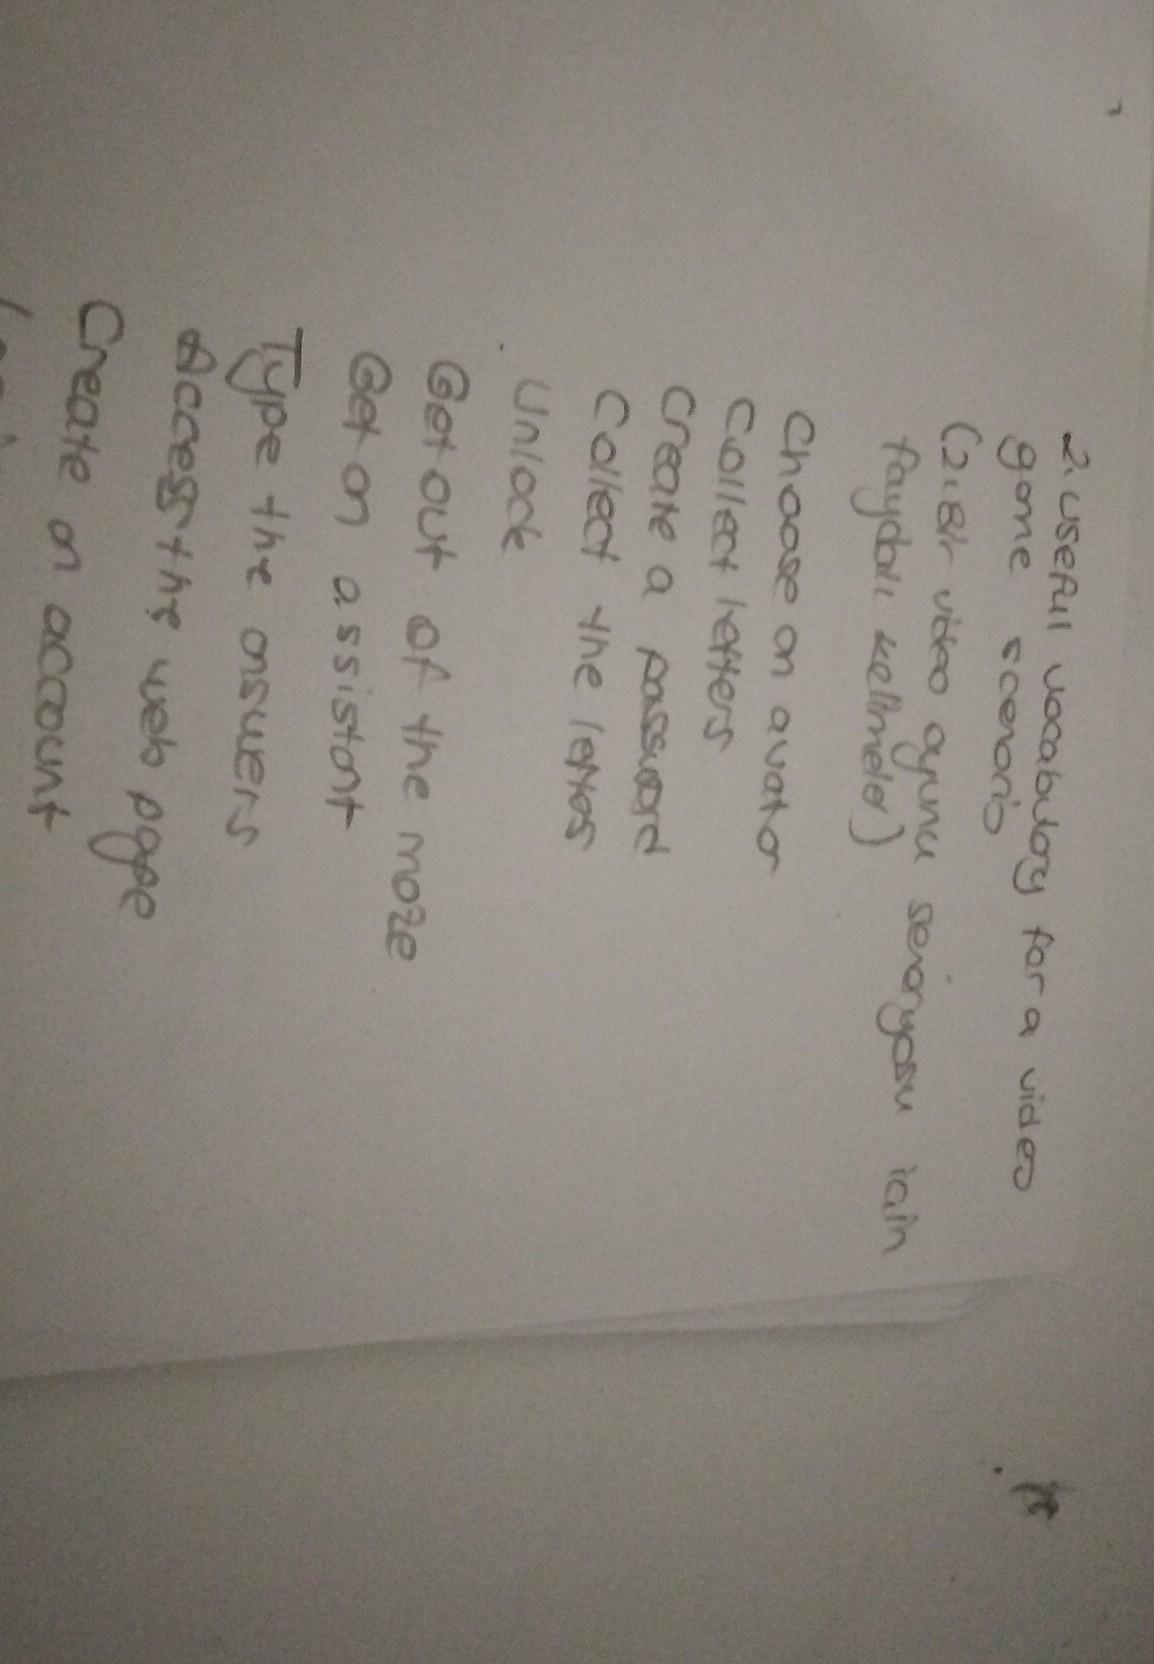 2. useful vocabulary for a video
game scenario
(2. Bir video oyunu senaryosu için
faydalı kelimeler)
Choose an avatar
Collect letters
Create a password
Collect the lettes
Unlock
Get out of the maze
Get an assistant
Type the answers
Access the web page
Create an account